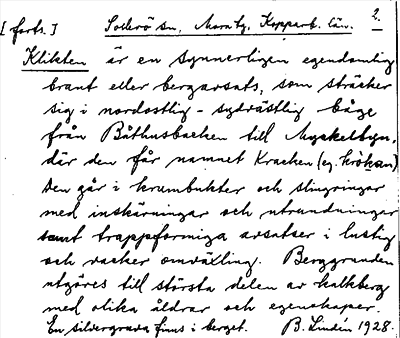 2.
[forts.] Sollerö sn, Mora tg, Kopparb. län.
Klikten är en synnerligen egendomlig
brant eller bergavsats, som sträcker
sig i nordostlig - sydvästlig båge
från Båthusbacken till Myckelbyn,
där den får namnet Kracken (eg. krökan)
Den går i krumbukter och slingringar
med inskärningar och utrundningar
samt trappformiga avsatser i lustig
och vacker omväxling. Berggrunden
utgöres till största delen av kalkberg
med olika åldrar och egenskaper.
En silvergruva finns i berget. B. Lindén 1928.